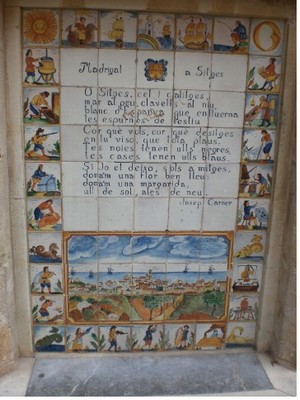 Madrigal a Sitges
O Sitges, cel i calitges,
mar al peu, clavells al mur,
blanc d'Espanya que enlluerna
les espurnes de l'estiu.
Cor que vols, cor que desitges
en tu visc, que tota plaus.
les noies tenen ulls negres
les cases tenen ulls blaus.
Si jo et deixo, sols a mitges,
dona'm una flor ben lleu:
dona'm una margarida,
ull de sol, ales de neu.
Josep Carner